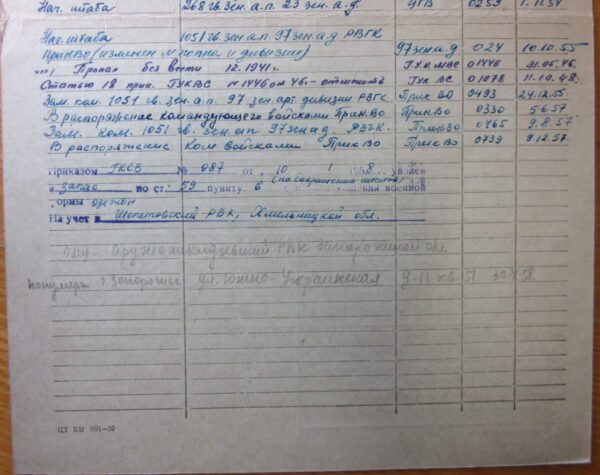 Нач. штаба 268 гв. зен. а.п. 23 зен. а.д. ЦГВ 0259 1.11.54
Нач. штаба 1051 гв. зен. а.п. 97 зен. а.д. РВГК
ПрикВО (изменен № полка и дивизии) 97 зен а.д 024 10.10.55
"Пропал без вести 12.1941г. ГУК МВС 01446 31.05.46.
Статью 18 прик. ГУКВС №1446 от 46.- отменить ГУК ВС 01078 11.10.48.
Зам. ком. 1051 гв. зен. а.п. 97 зен. арт. дивизии РВГК Прик ВО 0493 24.12.55.
В распоряжение командующего войсками ПрикВо ПрикВо 0330 5.6.57
Зам. Ком. 1051 гв. зен. ап 97 зен ад. РВГК. ПрикВо 0465 9.8.57
В распоряжение Ком. войсками ПрикВо ПрикВо 0739 9.12.57.
Приказом ГКСВ № 087 от 10 1 1958 уволен
в запас по ст. 59 пункту б (по сокращению штатов)
с военной
формы одежды
На учет в Шепетовский РВК, Хмельницкой обл.
РВК Запорожской обл.
г. Запорожье ул. Южно-Украинская д-11 кв. 51.